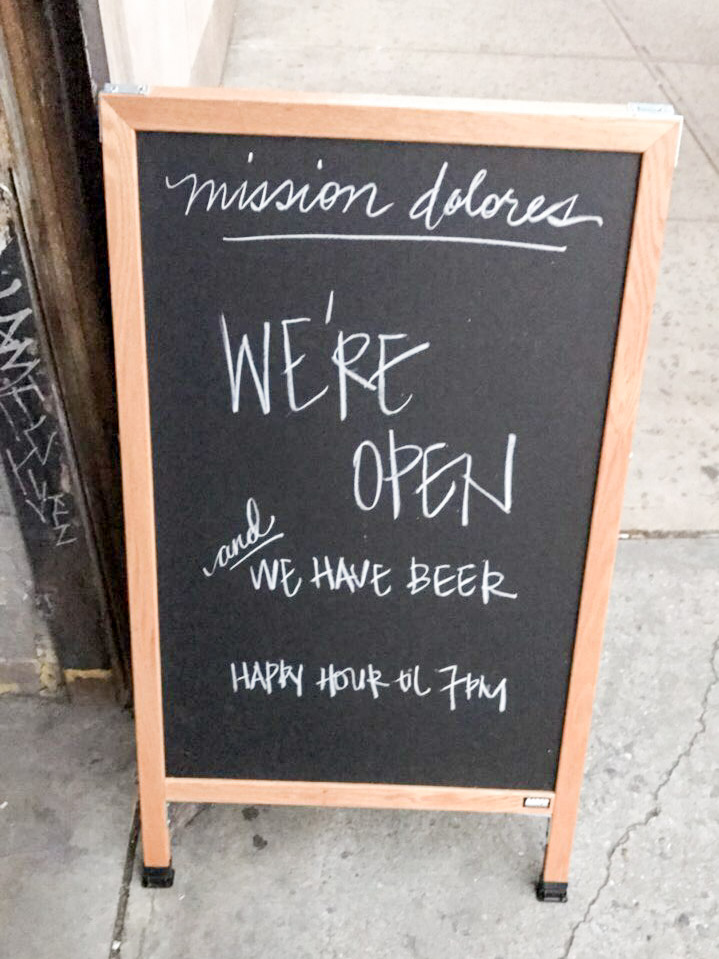 mission dolores
WE'RE
OPEN
and
WE HAVE BEER
HAPPY HOUR til 7PM